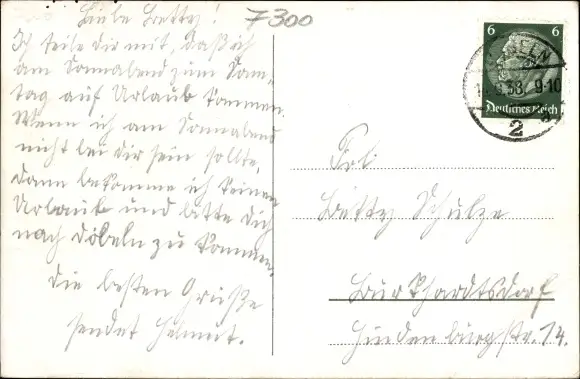 Liebe Betty!
7300
Ich teile Dir mit, daß ich
am Sonnabend zum Sonn-
tag auf Urlaub komme.
Wenn ich am Sonnabend
nicht bei dir sein sollte,
dann bekomme ich keinen
Urlaub und bitte Dich
nach Döbeln zu kommen.
Die besten Grüße
sendet Helmut.
6 6
Deutsches Reich
38. 9-10
2
Frl
Betty Schulze
Burkhardtsdorf
Hindenburgstr. 14.